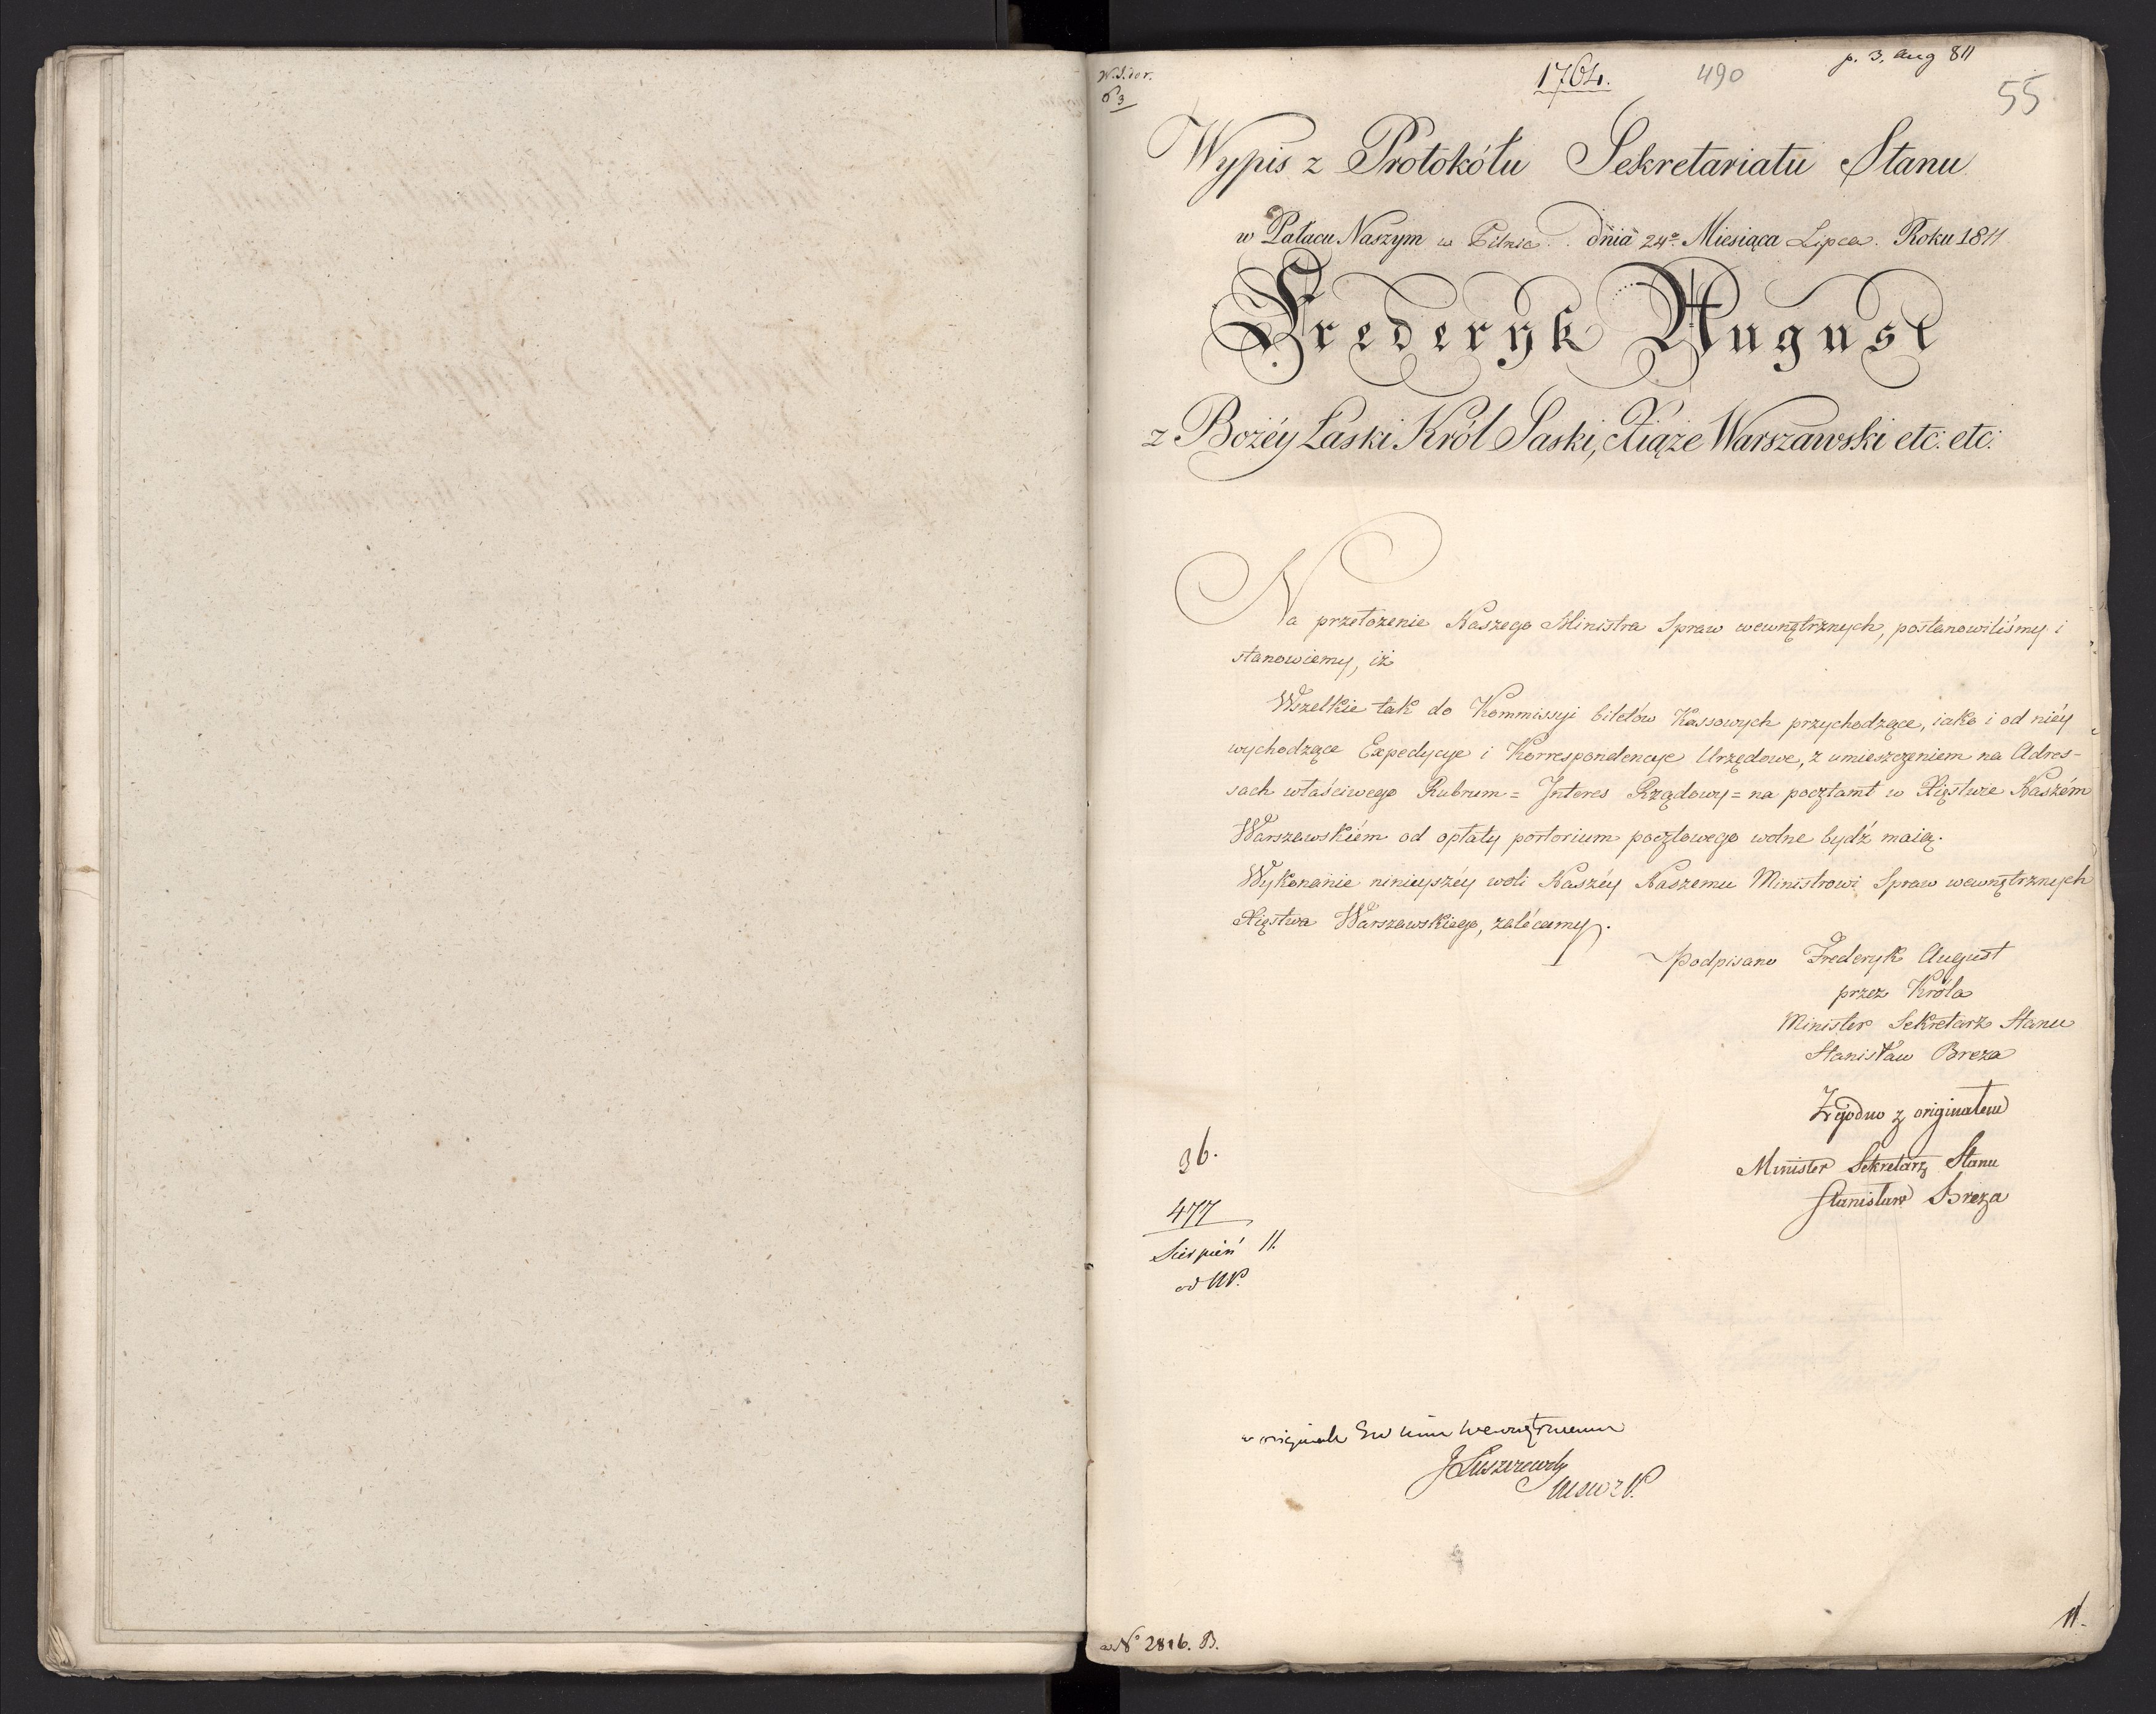 1764.
490
p. 3. Aug 811
55
Wypis z Protokółu Sekretariatu Stanu
w Pałacu Naszym w Pilnic. dnia 24º Miesiąca Lipca. Roku 1811
Frederyk August
z Bożéy Łaski Król Saski, Xiąże Warszawski etc: etc:
Na przełożenie Naszego Ministra Spraw wewnętrznych, postanowiliśmy i
stanowiemy, iż
Wszelkie tak do Kommissyi biletów Kassowych przychodzące, iako i od niéy
wychodzące Expedycye i Korrespondencye Urzędowe, z umieszczeniem na Adres-
sach właściwego Rubrum = Interes Rządowy = na pocztamt w Xięstwie Naszém
Warszawskiém od opłaty portorium pocztowego wolne bydź maią.
Wykonanie ninieyszéy woli Naszéy Naszemu Ministrowi Spraw wewnętrznych
Xięstwa Warszawskiego, zalécamy.
Podpisano Frederyk August
przez Króla
Minister Sekretarz Stanu
Stanisław Breza
Zgodno z originałem
Minister Sekretarz Stanu
Stanisław Breza
36.
477
Sierpień 11.
od
J Łuszczewsky
N° 2816. B.